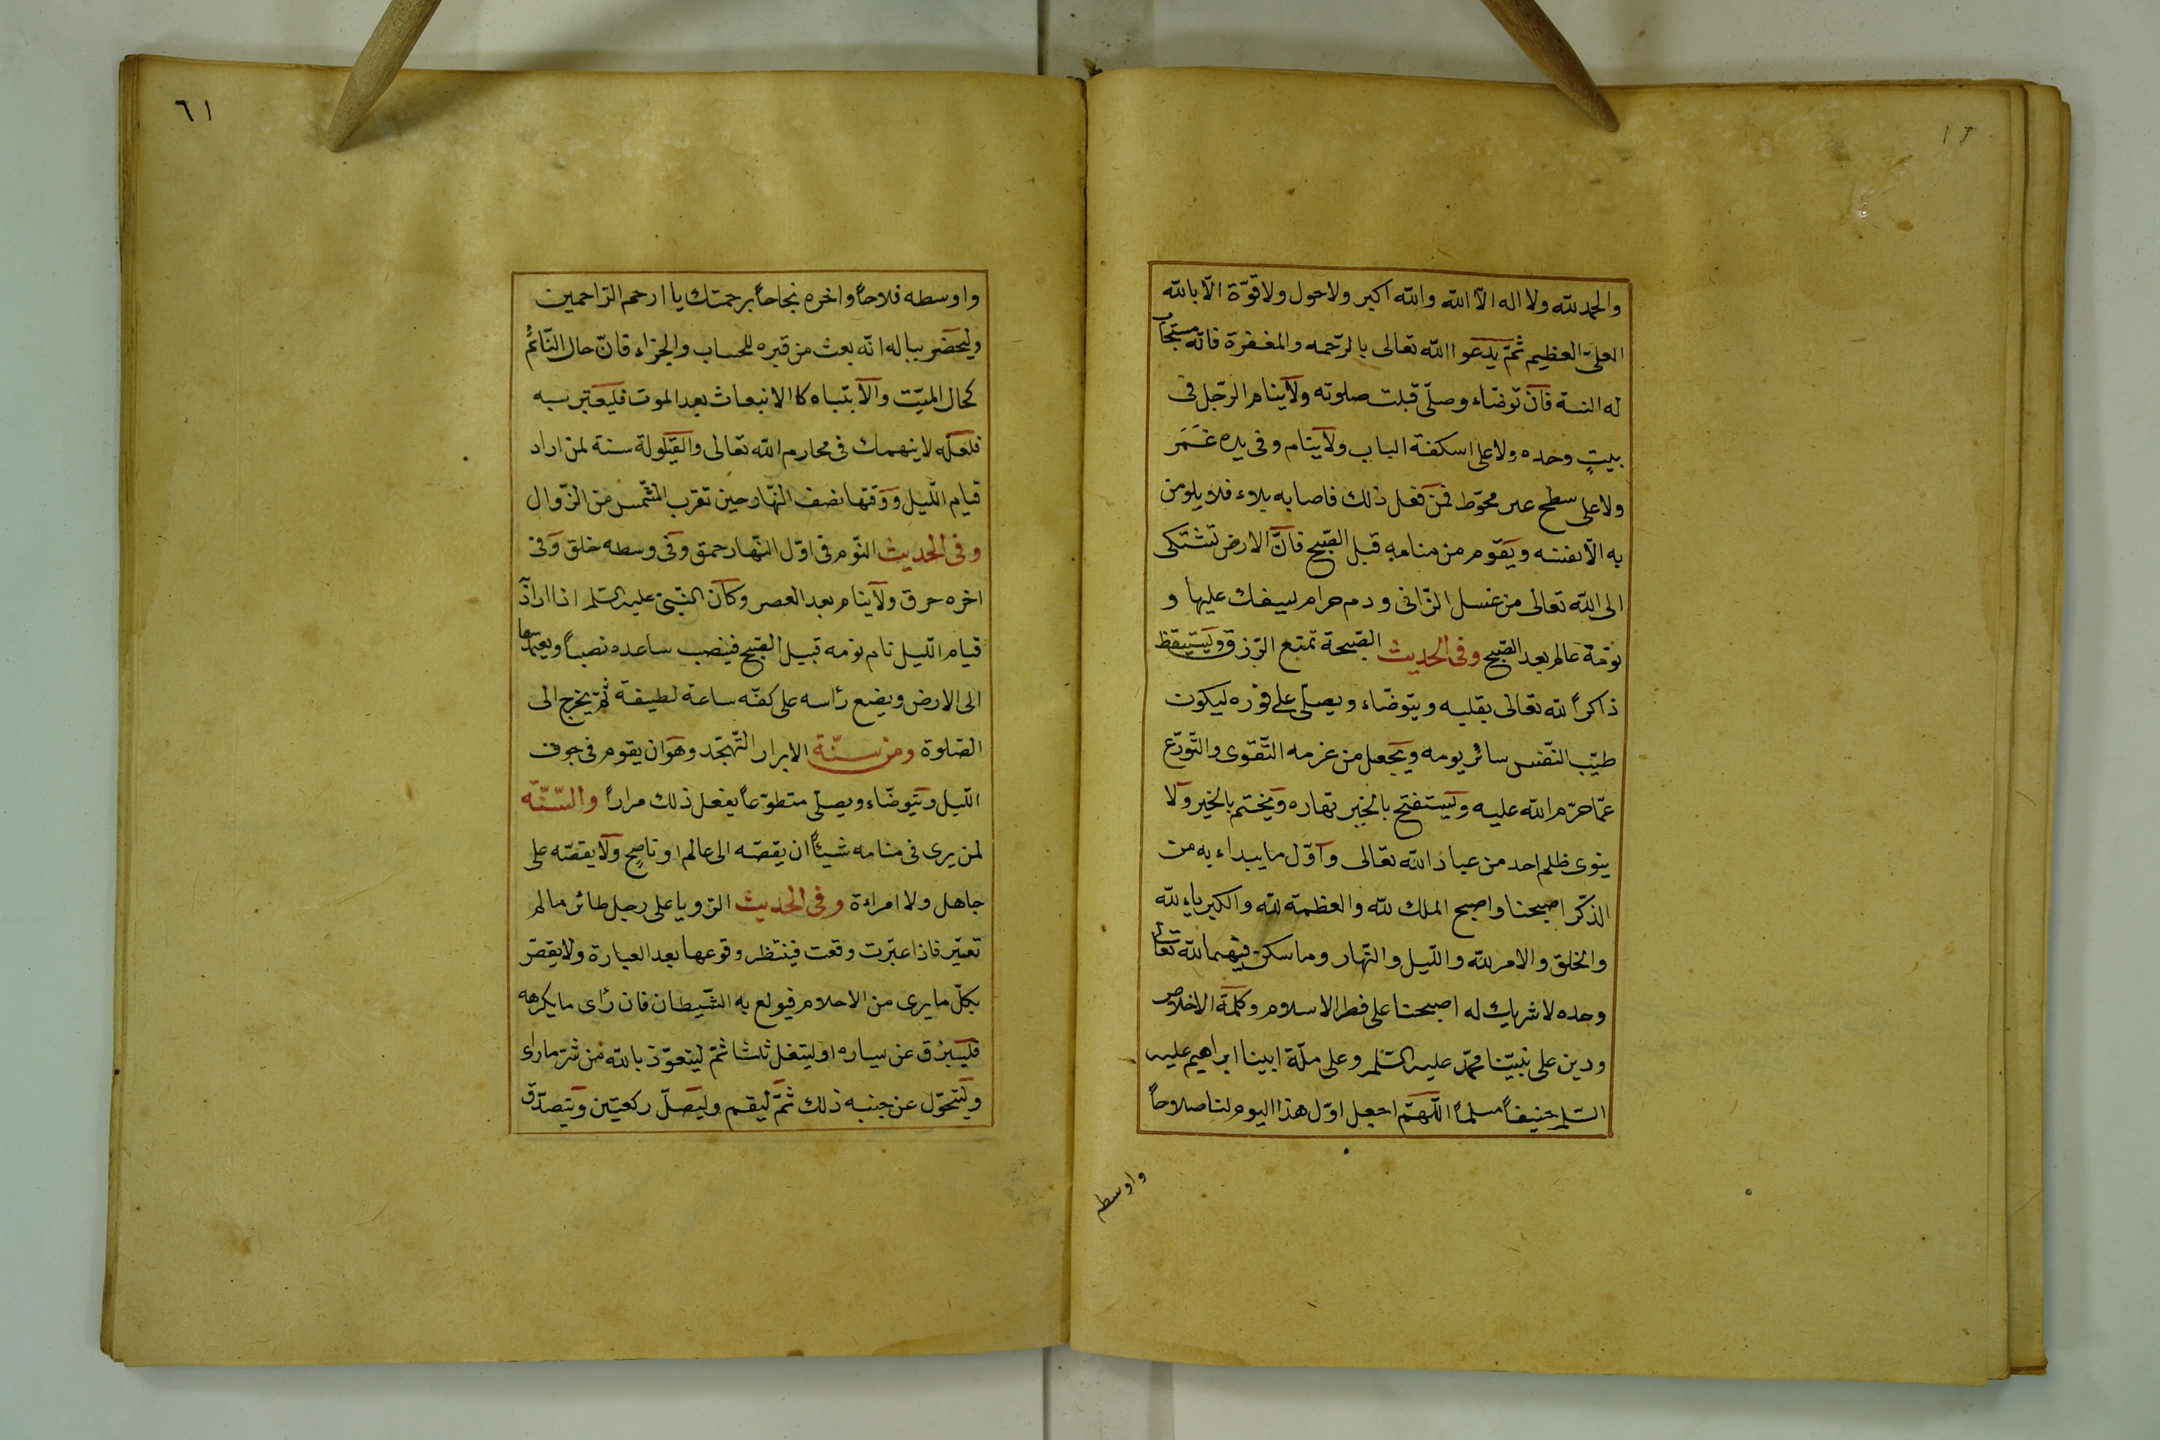 والحمد لله ولا اله الّا الله والله اكبر ولا حول ولا قوّة الّا بالله
العلىّ العظيم ثمّ يدعوا الله تعالى بالرّحمه والمغفرة فانّه مستجاب
له البتة فان توضّاء وصلّى قبلت صلوته ولا ينام الرّجل فى
بيتٍ وحده ولا على اسكفة الباب ولا ينام وفى يده غَمَر
ولا على سطح غير محوّط فمن فعل ذلك فاصابه بلاء فلا يلومن
به الّا نفسه ويقوم من منامه قبل الصّبح فانّ الارض تشتكى
الى الله تعالى من غسل الزّانى ودم حرام يسفك عليها و
نومة عالم بعد الصّبح وفى الحديث الصّبحة تمنع الرّزق ويستيقظ
ذاكراً لله تعالى بقلبه ويتوضّاء ويصلّى على فوره ليكون
طيّب النّفس سائر يومه ويجعل من عزمه التّقوى والتّورّع
عمّا حرّم الله عليه ويستفتح بالخير نهاره ويختم بالخير ولا
ينوى ظلم احد من عباد الله تعالى واوّل ما يبداء به من
الذّكر اصبحنا واصبح الملك لله والعظمة لله والكبرياء لله
والخلق والامر لله واللّيل والنّهار وما سكن فيهما لله تعالى
وحده لا شريك له اصبحنا على فطر الاسلام وكلمة الاخلاص
ودين على نبيّنا محمّد عليه السّلم وعلى ملّة ابينا ابراهيم عليه
السّلم حنيفاً مسلماً اللّهمّ اجعل اوّل هذا اليوم لنا صلاحاً
واوسطه
٦١
واوسطه فلاحاً واخره نجاحاً برحمتك يا ارحم الرّاحمين
وليحضر بباله انّه بعث من قبره للحساب والجزاء فانّ حال النّائم
كحال الميّت والانتباه كالانبعاث بعد الموت فليعتبر به
فلعلّه لا ينهمك فى محارم الله تعالى والقيلولة سنة لمن اراد
قيام اللّيل ووقتها نصف النّهار حين تقرب الشّمس من الزّوال
وفى الحديث النّوم فى اوّل النّهار حمق وفى وسطه خلق وفى
اخره حرق ولا ينام بعد العصر وكان النّبىّ عليه السّلم اذا اراد
قيام اللّيل نام نومه قبيل الصّبح فينصب ساعده نصباً ويعتمدها
الى الارض ويضع رأسه على كفّه ساعة لطيفة ثمّ يخرج الى
الصّلوة ومن سنّة الابرار التّهجّد وهو ان يقوم فى جوف
اللّيل ويتوضّاء ويصلّى متطوّعاً يفعل ذلك مراراً والسّنّة
لمن يرى فى منامه شيئاً ان يقصّه الى عالم او ناصح ولا يقصّه على
جاهل ولا امراءة وفى الحديث الرّويا على رجل طائر ما لم
تعبّر فاذا عبّرت وقعت فينتظر وقوعها بعد العبارة ولا يقصّ
بكلّ ما يرى من الاحلام فيولع به الشّيطان فان رأى ما يكرهه
فليبزُق عن يساره او ليتفل ثلثا ثمّ ليتعوّذ بالله من شرّ ما راى
وليتحوّل عن جنبه ذلك ثمّ ليقم وليصلّ ركعتين ويتصدّق